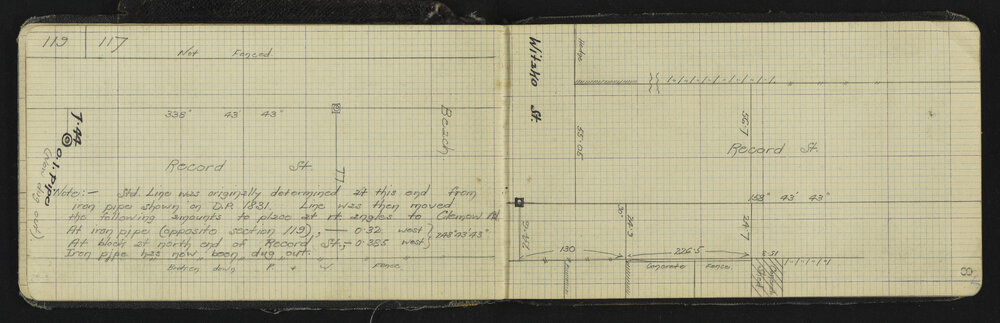 119 117
Not Fenced
338° 43' 43"
Beach
T.44 O.I. Pipe
(now dug out)
Record St.
77
Note:- Std. Line was originally determined at this end from
iron pipe shown on D.P. 1831. Line was then moved
the following amounts to place at rt. angles to Clemow Rd.
At iron pipe (opposite section 119), — 0.32 west
At block at north end of Record St. — 0.385 west
248° 43' 43"
Iron pipe has now been dug out.
Broken down P + W Fence
Witako St.
Hedge
55.05
56.7
Record St.
158° 43' 43"
24.3
24.7
130
226.5
Concrete Fence
8